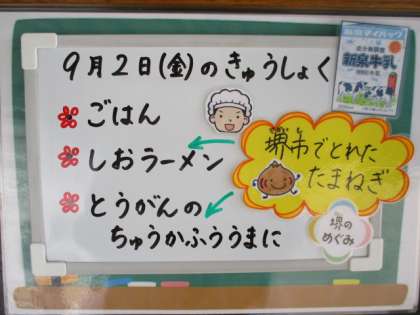 9月2日(金)のきゅうしょく
ごはん
しおラーメン
とうがんの
ちゅうかふううまに
堺市でとれた
たまねぎ
堺の
めぐみ
新泉牛乳